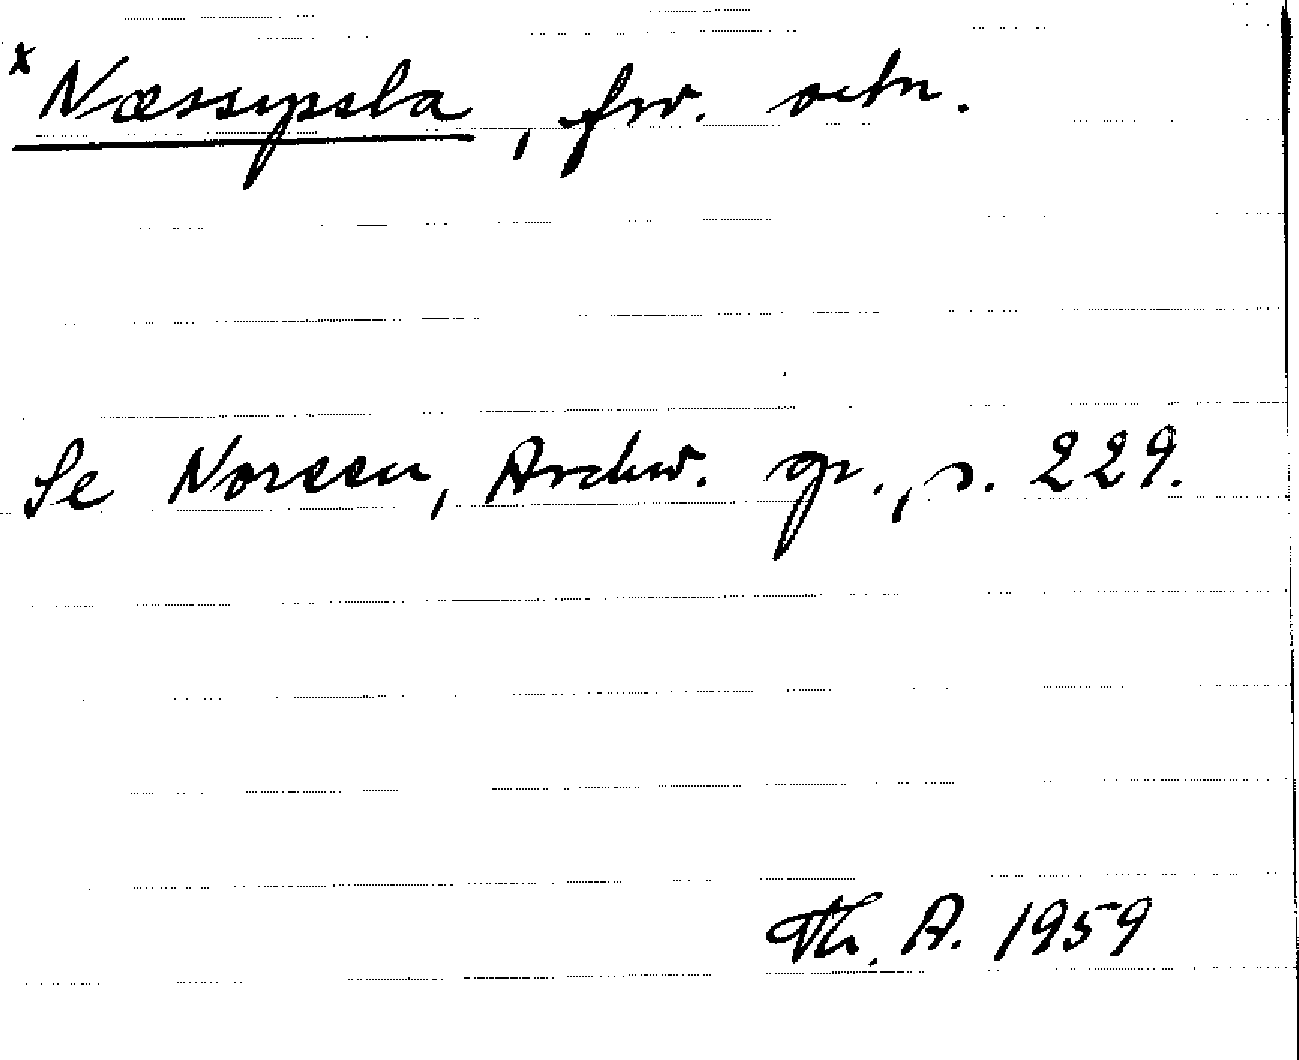 x Næssypsla, fsv. ortn.
Se Noreen, Aschw. gr., s. 229.
Th. A. 1959